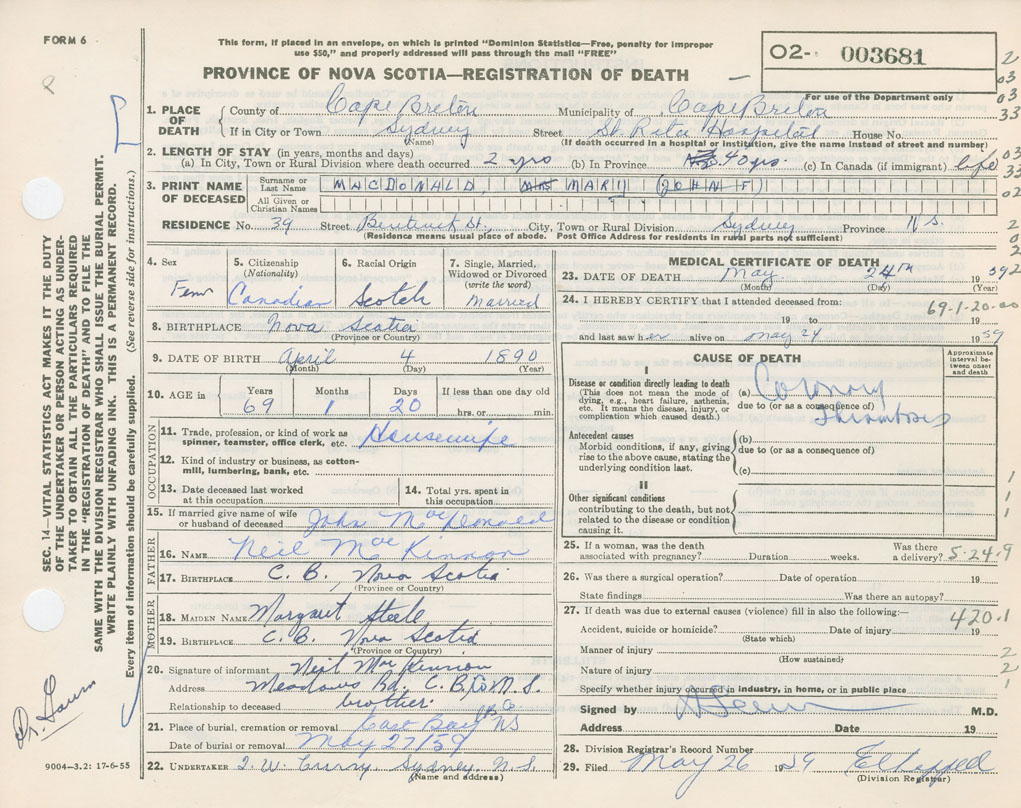 FORM 6
This form, if placed in an envelope, on which is printed "Dominion Statistics—Free, penalty for improper
use $50," and properly addressed will pass through the mail "FREE"
PROVINCE OF NOVA SCOTIA—REGISTRATION OF DEATH
02- 003681
For use of the Department only
1. PLACE OF DEATH
County of Cape Breton Municipality of Cape Breton
If in City or Town Sydney Street St. Rita Hospital House No.
(Name) (If death occurred in a hospital or institution, give the name instead of street and number)
2. LENGTH OF STAY (in years, months and days)
(a) In City, Town or Rural Division where death occurred 2 yrs (b) In Province 40 yrs. (c) In Canada (if immigrant) life
3. PRINT NAME OF DECEASED
Surname or Last Name MACDONALD, MRS MARY (JOHN F)
All Given or Christian Names
RESIDENCE No. 39 Street Bentinck St., City, Town or Rural Division Sydney Province N.S.
(Residence means usual place of abode. Post Office Address for residents in rural parts not sufficient)
4. Sex Fem
5. Citizenship (Nationality) Canadian
6. Racial Origin Scotch
7. Single, Married, Widowed or Divorced (write the word) Married
8. BIRTHPLACE Nova Scotia
(Province or Country)
9. DATE OF BIRTH April 4 1890
(Month) (Day) (Year)
10. AGE in Years 69 Months 1 Days 20 If less than one day old hrs. or min.
OCCUPATION
11. Trade, profession, or kind of work as spinner, teamster, office clerk, etc. Housewife
12. Kind of industry or business, as cotton-mill, lumbering, bank, etc.
13. Date deceased last worked at this occupation
14. Total yrs. spent in this occupation
15. If married give name of wife or husband of deceased John MacDonald
FATHER
16. NAME Neil MacKinnon
17. BIRTHPLACE C. B. Nova Scotia
(Province or Country)
MOTHER
18. MAIDEN NAME Margaret Steele
19. BIRTHPLACE C. B. Nova Scotia
(Province or Country)
20. Signature of informant Neil MacKinnon
Address Meadows Rd. C. B. Co N. S.
Relationship to deceased brother
21. Place of burial, cremation or removal East Bay NS
Date of burial or removal May 27/59
22. UNDERTAKER T. W. Curry, Sydney, N. S.
(Name and address)
MEDICAL CERTIFICATE OF DEATH
23. DATE OF DEATH May 24th 1959
(Month) (Day) (Year)
24. I HEREBY CERTIFY that I attended deceased from: 69-1-20-00
19 to 19
and last saw her alive on May 24 1959
CAUSE OF DEATH
Approximate interval between onset and death
I
Disease or condition directly leading to death
(This does not mean the mode of dying, e.g., heart failure, asthenia, etc. It means the disease, injury, or complication which caused death.)
(a) Coronary
due to (or as a consequence of)
Thrombosis
Antecedent causes
Morbid conditions, if any, giving rise to the above cause, stating the underlying condition last.
(b)
due to (or as a consequence of)
(c)
II
Other significant conditions contributing to the death, but not related to the disease or condition causing it.
25. If a woman, was the death associated with pregnancy? Duration weeks. Was there a delivery? 5-24-9
26. Was there a surgical operation? Date of operation 19
State findings Was there an autopsy?
27. If death was due to external causes (violence) fill in also the following:— 420.1
Accident, suicide or homicide? Date of injury 19
(State which)
Manner of injury
(How sustained)
Nature of injury
Specify whether injury occurred in industry, in home, or in public place
Signed by M.D.
Address Date 19
28. Division Registrar's Record Number
29. Filed May 26 1959
(Division Registrar)
SEC. 14—VITAL STATISTICS ACT MAKES IT THE DUTY
OF THE UNDERTAKER OR PERSON ACTING AS UNDER-
TAKER TO OBTAIN ALL THE PARTICULARS REQUIRED
IN THE "REGISTRATION OF DEATH" AND TO FILE THE
SAME WITH THE DIVISION REGISTRAR WHO SHALL ISSUE THE BURIAL PERMIT.
WRITE PLAINLY WITH UNFADING INK. THIS IS A PERMANENT RECORD.
Every item of information should be carefully supplied. (See reverse side for instructions.)
9004-3.2: 17-6-55